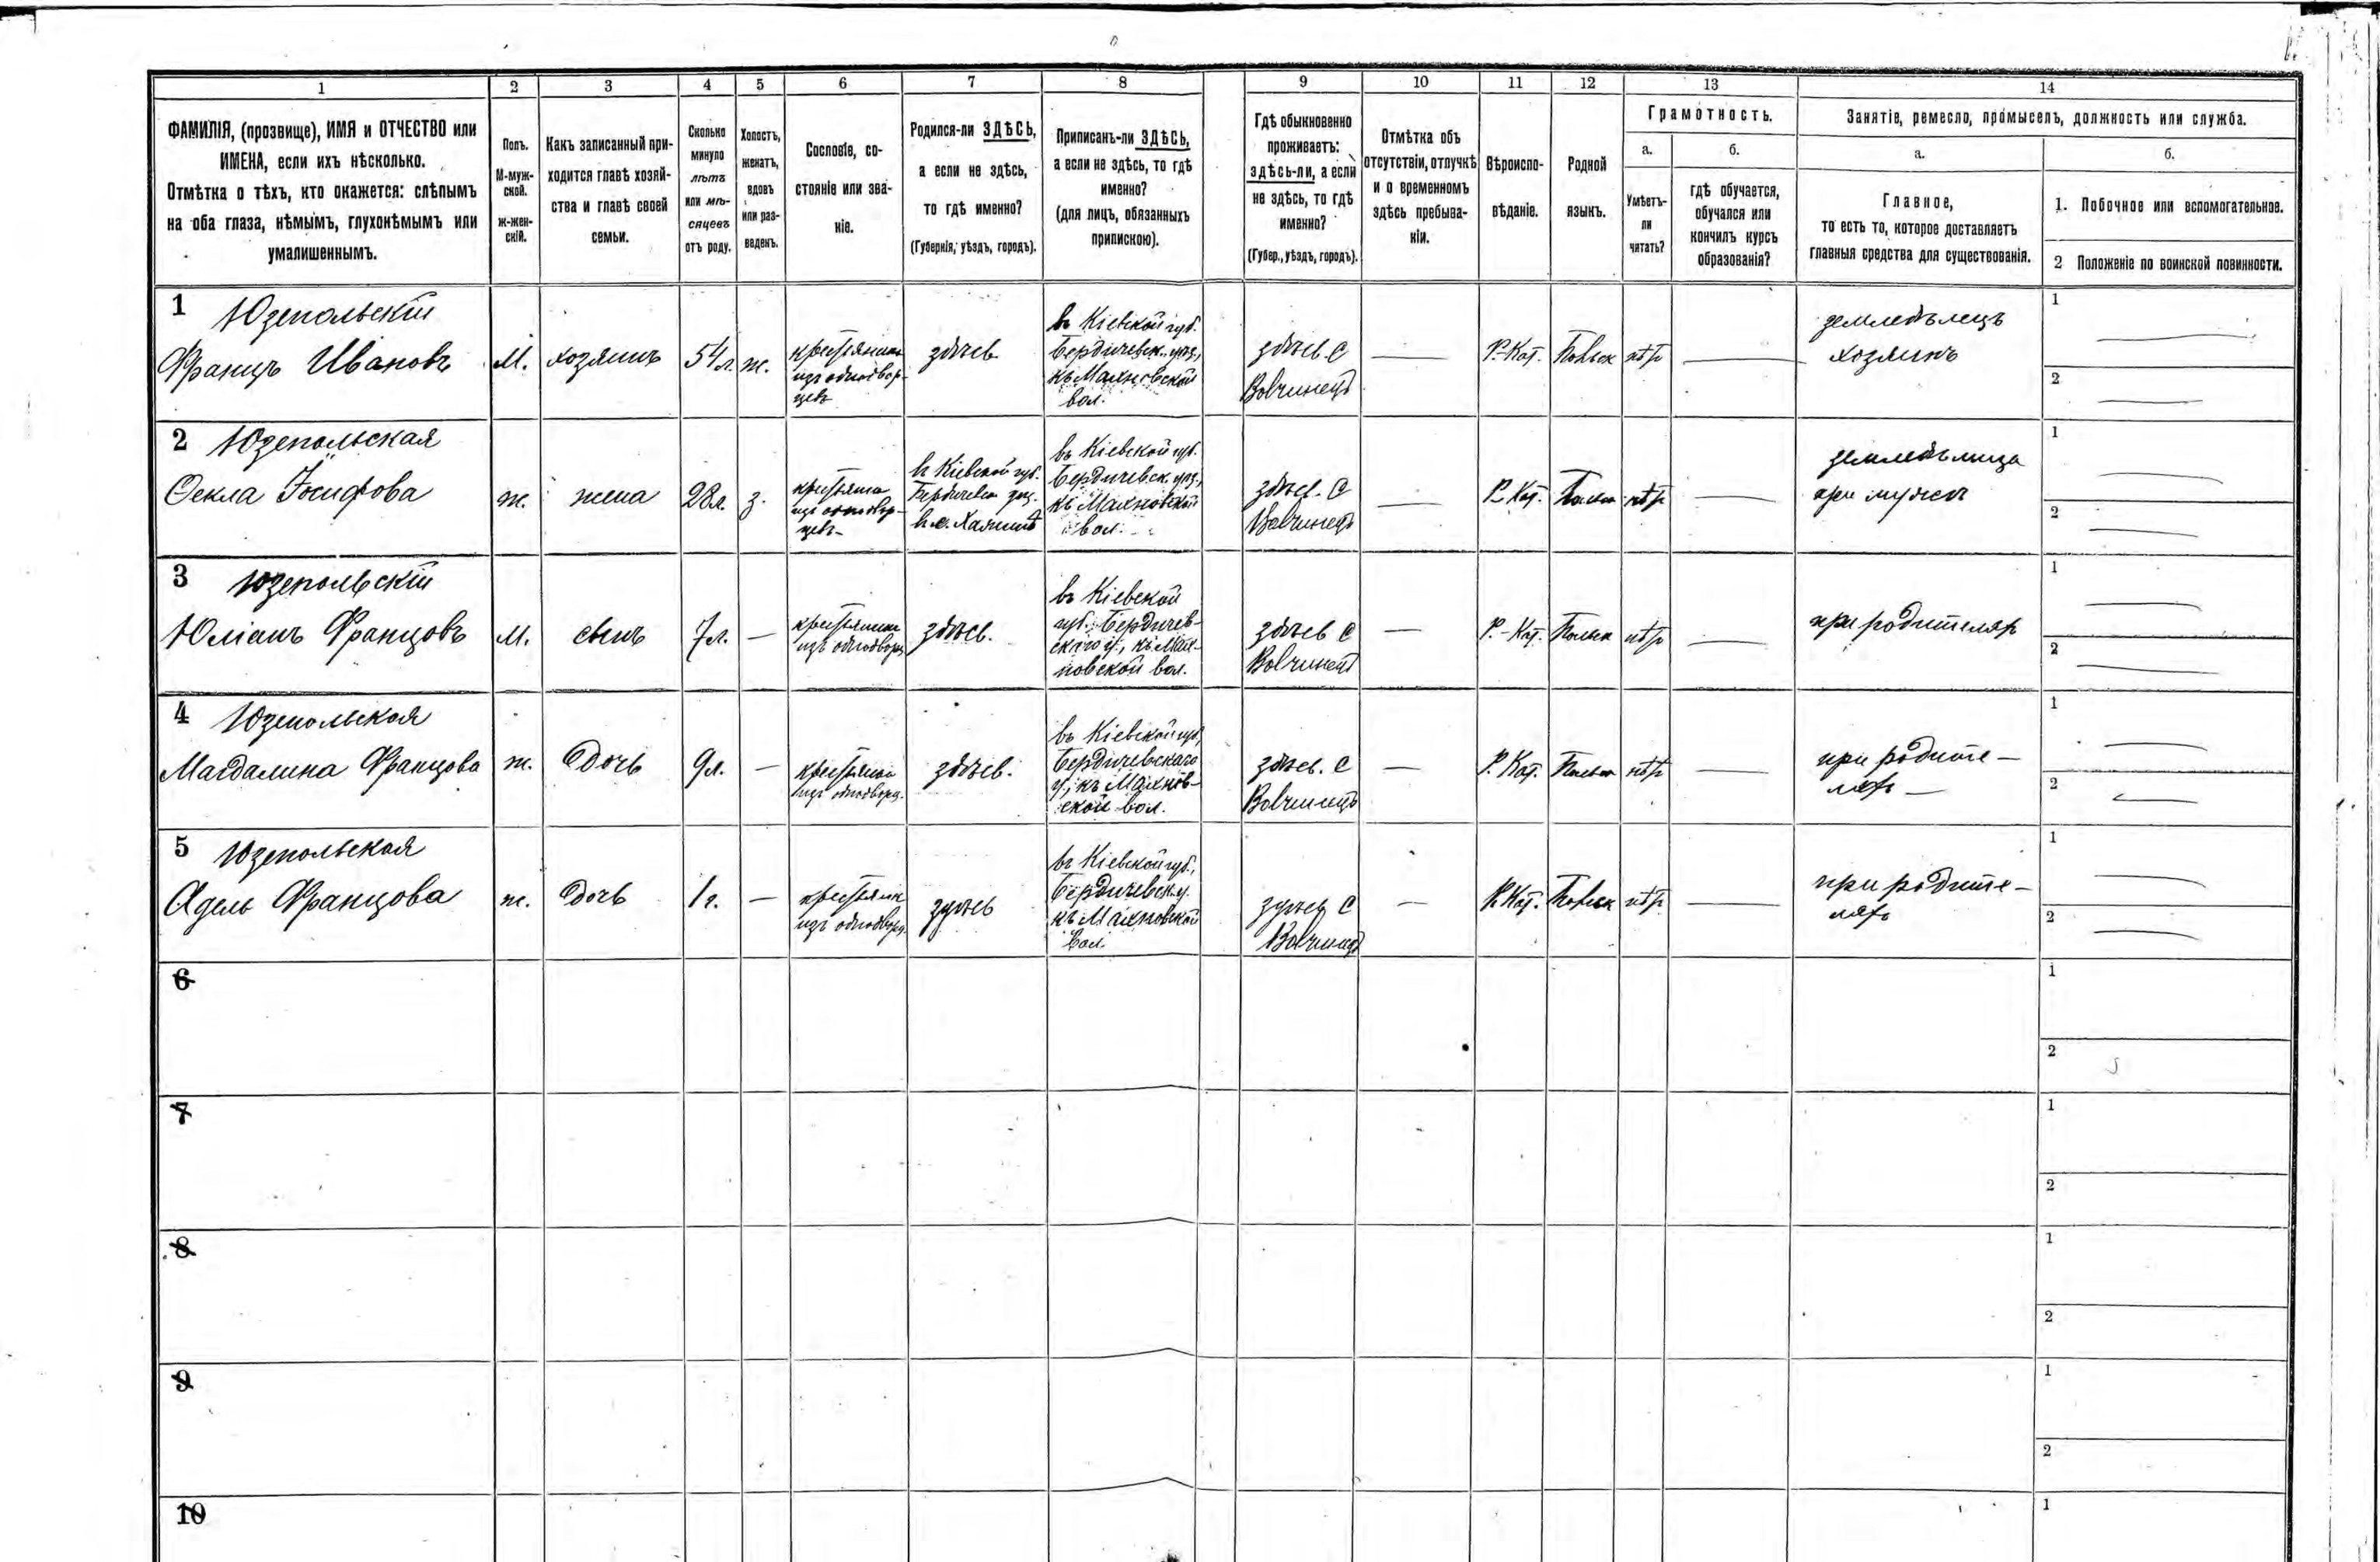 1 2 3 4 5 6 7 8 9 10 11 12 13 14
ФАМИЛІЯ, (прозвище), ИМЯ и ОТЧЕСТВО или
ИМЕНА, если ихъ нѣсколько.
Отмѣтка о тѣхъ, кто окажется: слѣпымъ
на оба глаза, нѣмымъ, глухонѣмымъ или
умалишеннымъ.
Полъ.
М-муж-
ской.
ж-жен-
скій.
Какъ записанный при-
ходится главѣ хозяй-
ства и главѣ своей
семьи.
Сколько
минуло
лѣтъ
или мѣ-
сяцевъ
отъ роду.
Холостъ,
женатъ,
вдовъ
или раз-
веденъ.
Сословіе, со-
стояніе или зва-
ніе.
Родился-ли ЗДѢСЬ,
а если не здѣсь,
то гдѣ именно?
(Губернія, уѣздъ, городъ).
Приписанъ-ли ЗДѢСЬ,
а если не здѣсь, то гдѣ
именно?
(для лицъ, обязанныхъ
припискою).
Гдѣ обыкновенно
проживаетъ:
здѣсь-ли, а если
не здѣсь, то гдѣ
именно?
(Губер., уѣздъ, городъ).
Отмѣтка объ
отсутствіи, отлучкѣ
и о временномъ
здѣсь пребыва-
ніи.
Вѣроиспо-
вѣданіе.
Родной
языкъ.
Грамотность.
а.
Умѣетъ-
ли
читать?
б.
гдѣ обучается,
обучался или
кончилъ курсъ
образованія?
Занятіе, ремесло, промыселъ, должность или служба.
а.
Главное,
то есть то, которое доставляетъ
главныя средства для существованія.
б.
1. Побочное или вспомогательное.
2 Положеніе по воинской повинности.
1 Юзепольскій
Францъ Ивановъ
М.
хозяинъ
54 л.
ж.
крестьянинъ
изъ однодвор-
цевъ
здѣсь
въ Кіевской губ.
Бердичевск. уѣз.,
къ Махновской
вол.
здѣсь. С
Вовчинецъ
Р.-Кат.
Польск
нѣтъ
земледѣлецъ
хозяинъ
1
2
2 Юзепольская
Ѳекла Іосифова
ж.
жена
28 л.
з.
крестьянка
изъ однодвор-
цевъ
въ Кіевской губ.
въ Кіевской губ.
Бердичевск. уѣз.,
къ Махновской
вол.
здѣсь. С
Вовчинецъ
Р. Кат.
нѣтъ
земледѣлица
при мужѣ
1
2
3 Юзепольскій
Юліанъ Францовъ
М.
сынъ
7 л.
крестьянинъ
изъ однодворц
здѣсь.
въ Кіевской
губ. Бердичев-
скаго у., къ Мах-
новской вол.
здѣсь С
Вовчинецъ
Р.-Кат.
Польск
нѣтъ
при родителяхъ
1
2
4 Юзепольская
Магдалина Францова
ж.
Дочь
9 л.
крестьянка
изъ однодворц.
здѣсь.
въ Кіевской губ.,
Бердичевскаго
у., къ Махнов-
ской вол.
здѣсь. С
Вовчинецъ
Р. Кат.
Польск
нѣтъ
при родите-
ляхъ
1
2
5 Юзепольская
Адель Францова
ж.
Дочь
1 г.
крестьянк
изъ однодворц.
здѣсь
въ Кіевской губ.,
Бердичевск. у.
къ Махновской
вол.
здѣсь С
Вовчинецъ
Р. Кат.
Польск
нѣтъ
при родите-
ляхъ
1
2
6
1
2
7
1
2
8
1
2
9
1
2
10
1